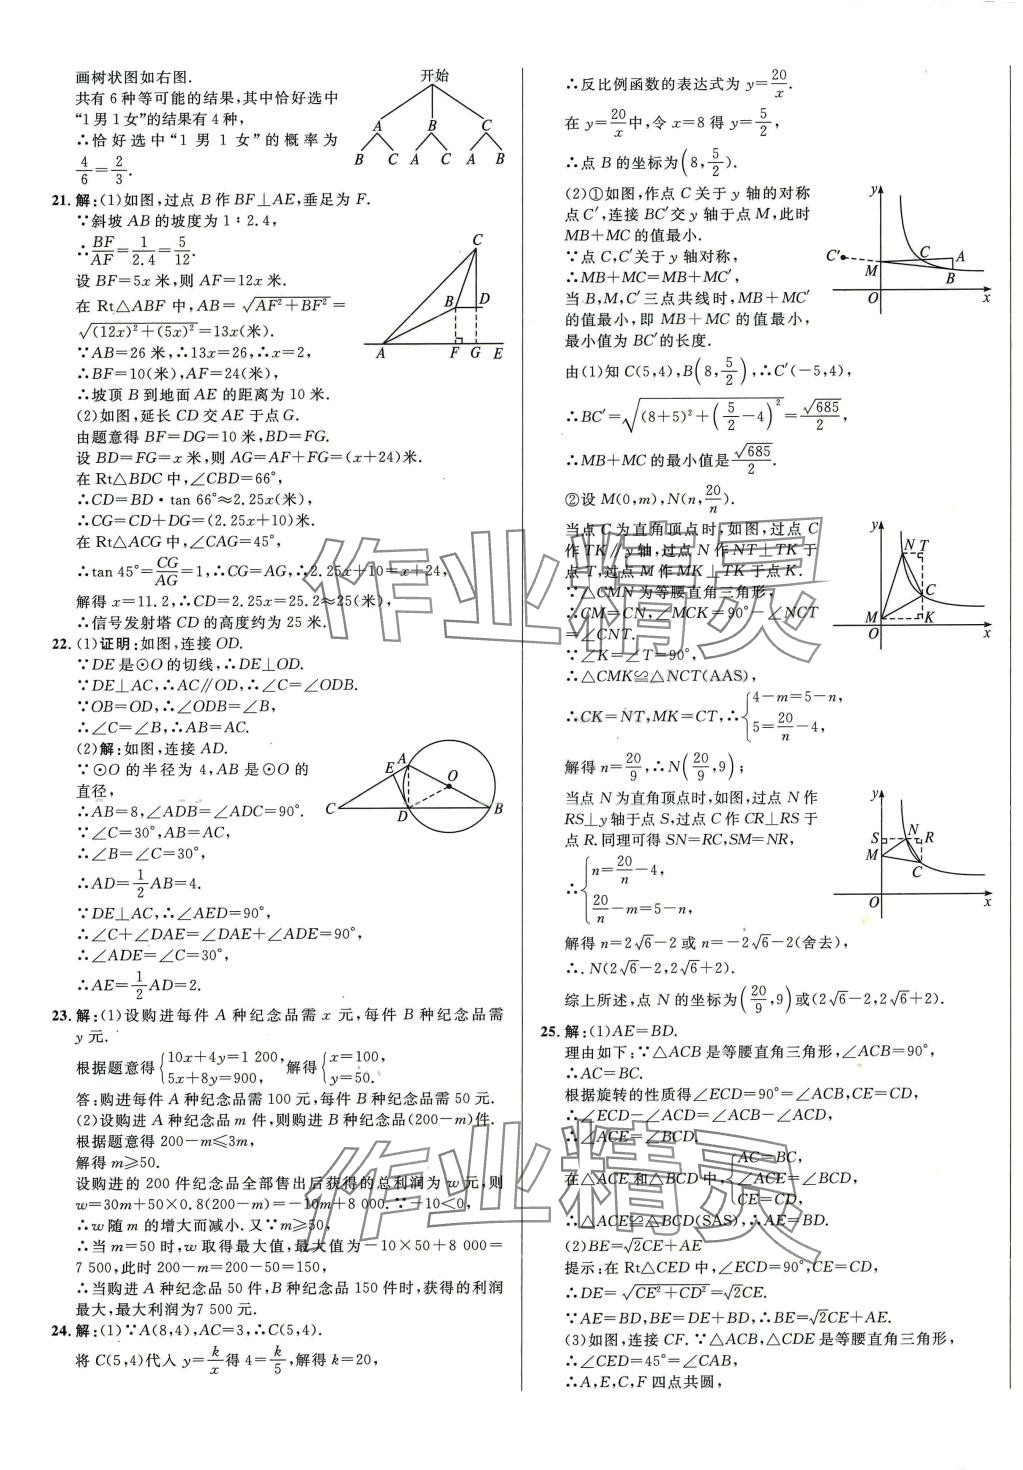 画树状图如右图.
共有 6 种等可能的结果,其中恰好选中
“1 男 1 女”的结果有 4 种,
∴恰好选中“1 男 1 女”的概率为
4/6=2/3.
开始
A B C
B C A C A B
21. 解:(1)如图,过点 B 作 BF⊥AE,垂足为 F.
∵斜坡 AB 的坡度为 1∶2.4,
∴BF/AF=1/2.4=5/12.
设 BF=5x 米,则 AF=12x 米.
在 Rt△ABF 中,AB=√(AF²+BF²)=
√((12x)²+(5x)²)=13x(米).
∵AB=26 米,∴13x=26,∴x=2,
∴BF=10(米),AF=24(米),
∴坡顶 B 到地面 AE 的距离为 10 米.
(2)如图,延长 CD 交 AE 于点 G.
由题意得 BF=DG=10 米,BD=FG.
设 BD=FG=x 米,则 AG=AF+FG=(x+24)米.
在 Rt△BDC 中,∠CBD=66°,
∴CD=BD·tan 66°≈2.25x(米),
∴CG=CD+DG=(2.25x+10)米.
在 Rt△ACG 中,∠CAG=45°,
∴tan 45°=CG/AG=1,∴CG=AG,∴2.25x+10=x+24,
解得 x=11.2,∴CD=2.25x=25.2≈25(米),
∴信号发射塔 CD 的高度约为 25 米.
C
B D
A F G E
22. (1)证明:如图,连接 OD.
∵DE 是⊙O 的切线,∴DE⊥OD.
∵DE⊥AC,∴AC∥OD,∴∠C=∠ODB.
∵OB=OD,∴∠ODB=∠B,
∴∠C=∠B,∴AB=AC.
(2)解:如图,连接 AD.
∵⊙O 的半径为 4,AB 是⊙O 的
直径,
∴AB=8,∠ADB=∠ADC=90°.
∵∠C=30°,AB=AC,
∴∠B=∠C=30°,
∴AD=1/2AB=4.
∵DE⊥AC,∴∠AED=90°,
∴∠C+∠DAE=∠DAE+∠ADE=90°,
∴∠ADE=∠C=30°,
∴AE=1/2AD=2.
A
E O
C D B
23. 解:(1)设购进每件 A 种纪念品需 x 元,每件 B 种纪念品需
y 元.
根据题意得{10x+4y=1 200, 5x+8y=900, 解得{x=100, y=50.
答:购进每件 A 种纪念品需 100 元,每件 B 种纪念品需 50 元.
(2)设购进 A 种纪念品 m 件,则购进 B 种纪念品(200-m)件.
根据题意得 200-m≤3m,
解得 m≥50.
设购进的 200 件纪念品全部售出后获得的总利润为 w 元,则
w=30m+50×0.8(200-m)=-10m+8 000.∵-10<0,
∴w 随 m 的增大而减小.又∵m≥50,
∴当 m=50 时,w 取得最大值,最大值为-10×50+8 000=
7 500,此时 200-m=200-50=150,
∴当购进 A 种纪念品 50 件,B 种纪念品 150 件时,获得的利润
最大,最大利润为7 500元.
24. 解:(1)∵A(8,4),AC=3,∴C(5,4).
将 C(5,4)代入 y=k/x得 4=k/5,解得 k=20,
∴反比例函数的表达式为 y=20/x.
在 y=20/x中,令 x=8 得 y=5/2,
∴点 B 的坐标为(8,5/2).
(2)①如图,作点 C 关于 y 轴的对称
点 C′,连接 BC′交 y 轴于点 M,此时
MB+MC 的值最小.
∵点 C,C′关于 y 轴对称,
∴MB+MC=MB+MC′,
当 B,M,C′三点共线时,MB+MC′
的值最小,即 MB+MC 的值最小,
最小值为 BC′的长度.
由(1)知 C(5,4),B(8,5/2),∴C′(-5,4),
∴BC′=√((8+5)²+(5/2-4)²)=√685/2,
∴MB+MC 的最小值是√685/2.
y
C′ C A
M B
O x
②设 M(0,m),N(n,20/n).
当点 C 为直角顶点时,如图,过点 C
作 TK∥y 轴,过点 N 作 NT⊥TK 于
点 T,过点 M 作 MK⊥TK 于点 K.
∵△CMN 为等腰直角三角形,
∴CM=CN,∠MCK=90°-∠NCT
=∠CNT.
∵∠K=∠T=90°,
∴△CMK≌△NCT(AAS),
∴CK=NT,MK=CT,∴{4-m=5-n, 5=20/n-4,
解得 n=20/9,∴N(20/9,9);
y
N T
C
M K
O x
当点 N 为直角顶点时,如图,过点 N 作
RS⊥y 轴于点 S,过点 C 作 CR⊥RS 于
点 R.同理可得 SN=RC,SM=NR,
∴{n=20/n-4, 20/n-m=5-n,
解得 n=2√6-2 或 n=-2√6-2(舍去),
∴N(2√6-2,2√6+2).
综上所述,点 N 的坐标为(20/9,9)或(2√6-2,2√6+2).
y
S N R
M C
O x
25. 解:(1)AE=BD.
理由如下:∵△ACB 是等腰直角三角形,∠ACB=90°,
∴AC=BC.
根据旋转的性质得∠ECD=90°=∠ACB,CE=CD,
∴∠ECD-∠ACD=∠ACB-∠ACD,
∴∠ACE=∠BCD.
在△ACE 和△BCD 中,{AC=BC, ∠ACE=∠BCD, CE=CD,
∴△ACE≌△BCD(SAS),∴AE=BD.
(2)BE=√2CE+AE
提示:在 Rt△CED 中,∠ECD=90°,CE=CD,
∴DE=√(CE²+CD²)=√2CE.
∵AE=BD,BE=DE+BD,∴BE=√2CE+AE.
(3)如图,连接 CF.∵△ACB,△CDE 是等腰直角三角形,
∴∠CED=45°=∠CAB,
∴A,E,C,F 四点共圆,
作业精灵
作业精灵